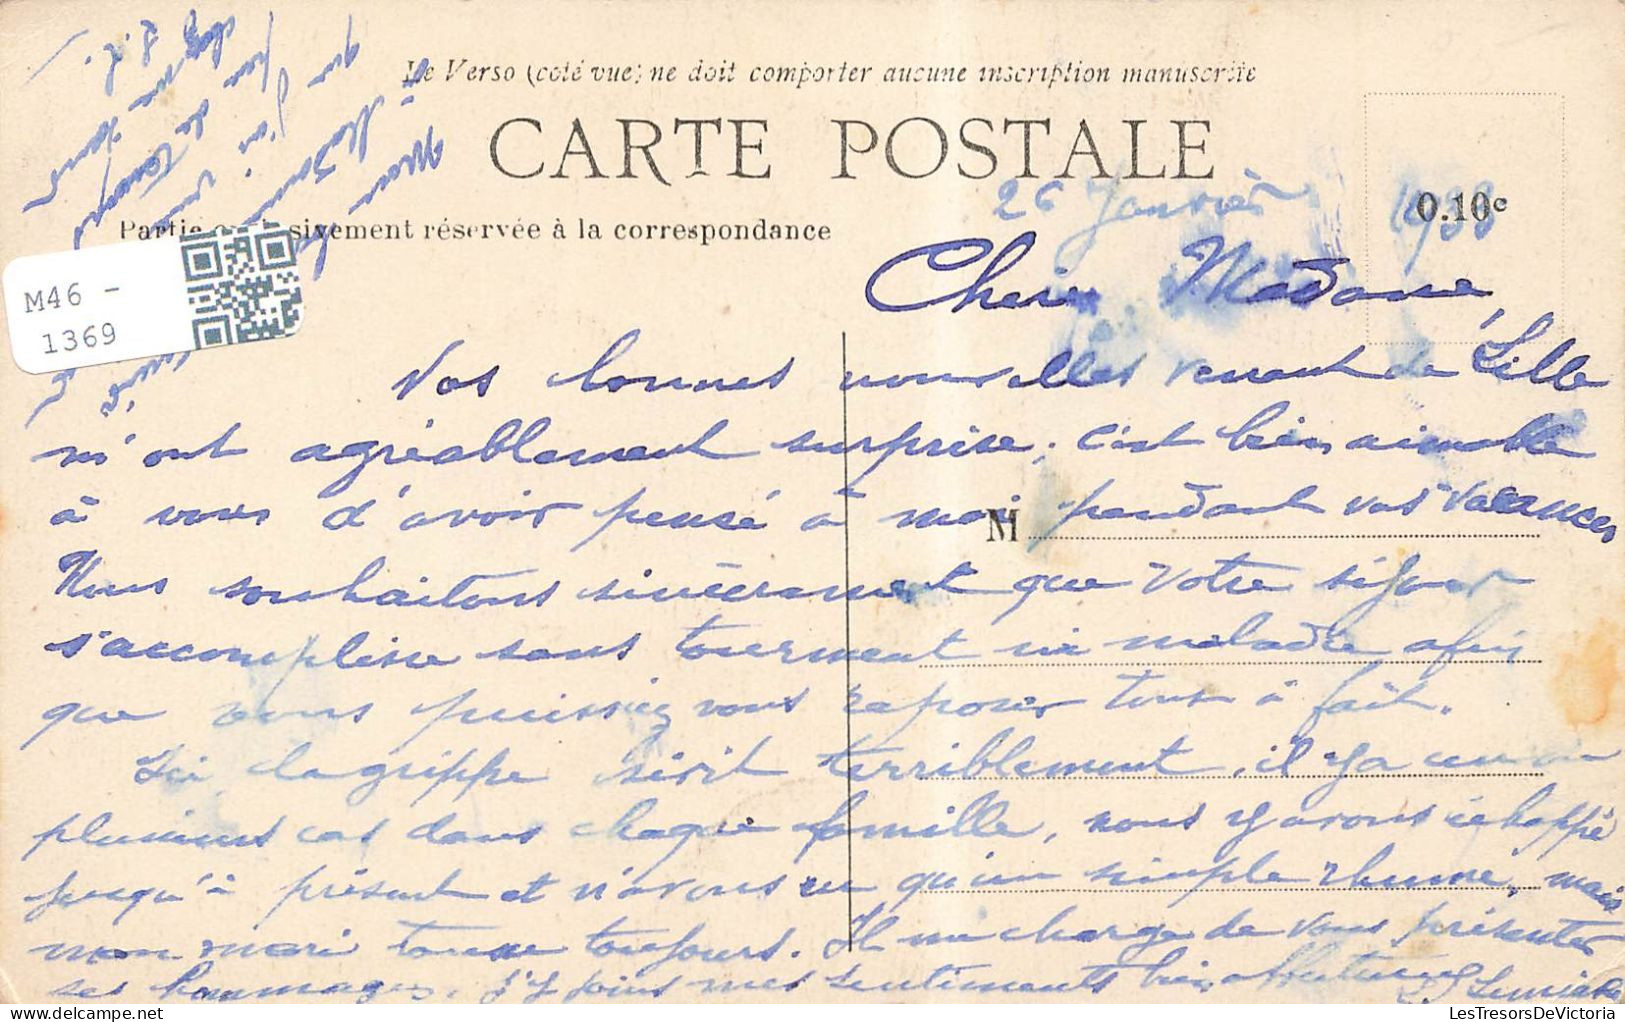 Le Verso (coté vue) ne doit comporter aucune inscription manuscrite
CARTE POSTALE
0.10c
Partie exclusivement réservée à la correspondance
M46 -
1369
26 Janvier 1933
Chère Madame,
Vos bonnes nouvelles venant de Lille
m'ont agréablement surprise, c'est bien aimable
à vous d'avoir pensé à moi pendant vos vacances
M
Nous souhaitons sincèrement que votre séjour
s'accomplisse sans tourment ni maladie afin
que vous puissiez vous reposer tout à fait.
Ici la grippe sévit terriblement, il y a
plusieurs cas dans chaque famille, nous y avons échappé
jusqu'à présent et n'avons eu qu'un simple rhume, mais
mon mari tousse toujours. Il me charge de vous présenter
ses hommages. J'y joins mes sentiments bien affectueux
LesTresorsDeVictoria